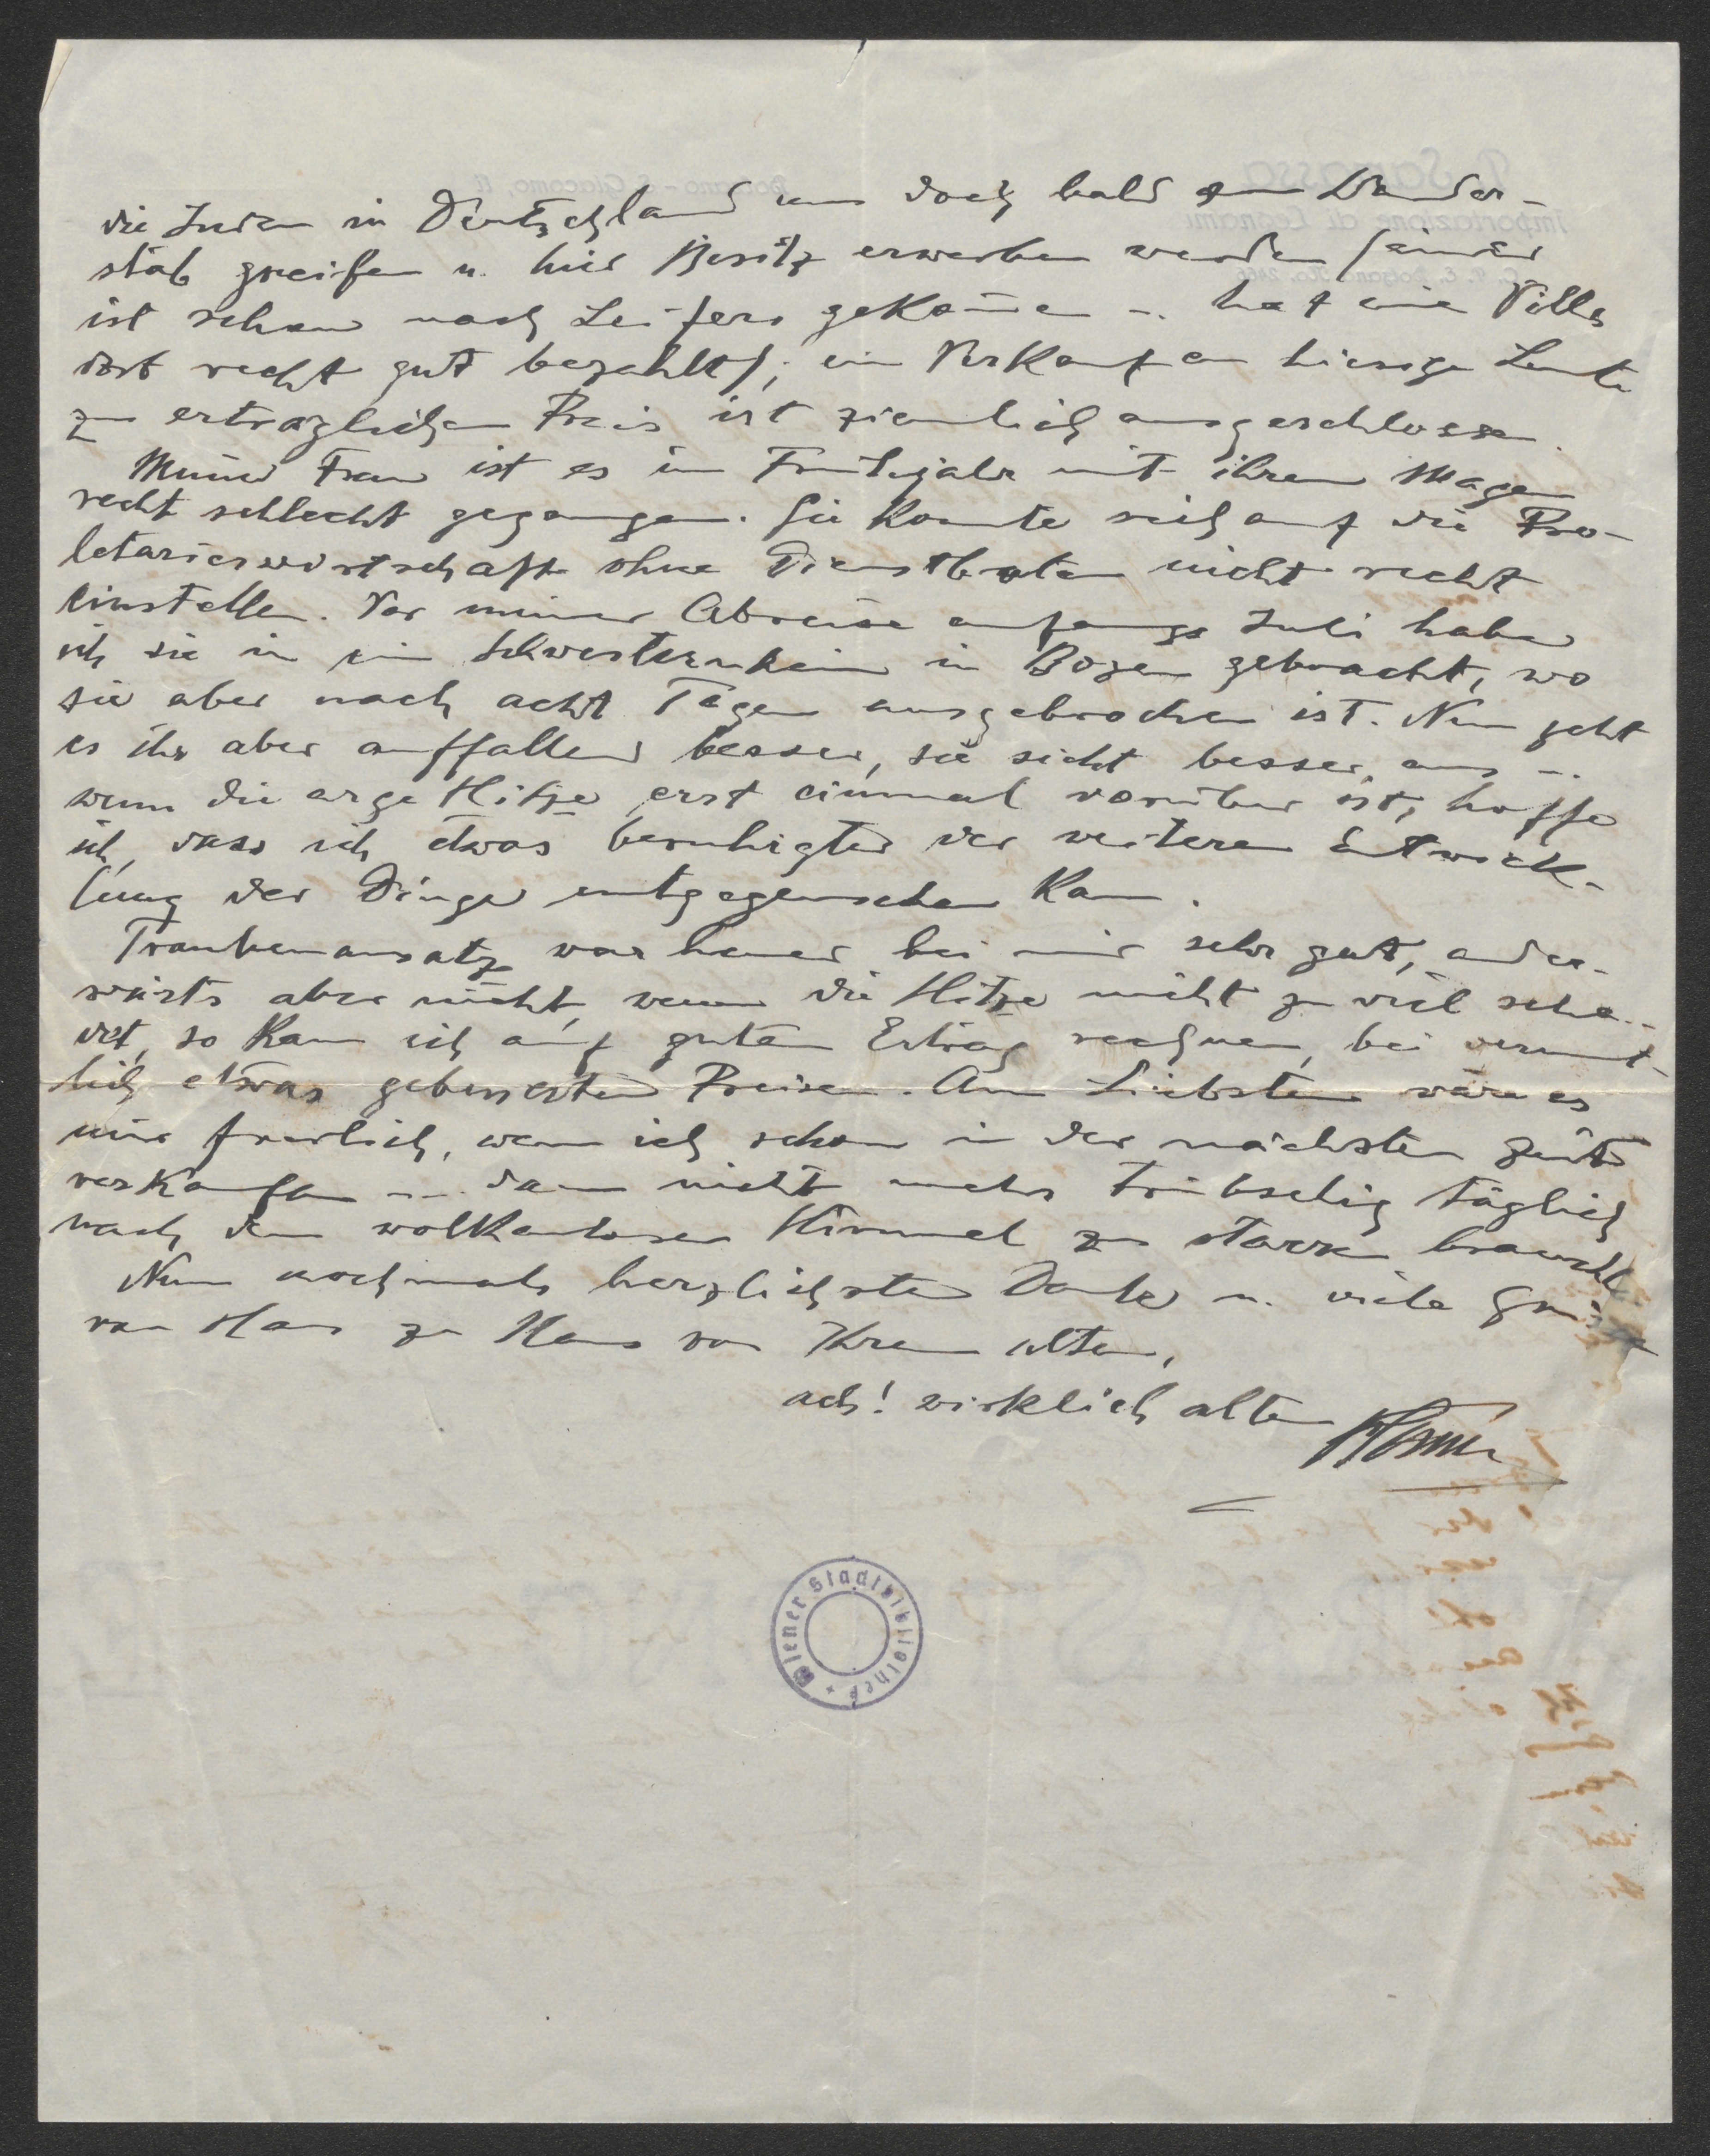 die Juden in Deutschland nun doch bald zum Wander-
stab greifen u. hier Besitz erwerben werden (einer
ist schon nach Leifers gekom̄en u. hat eine Villa
dort recht gut bezahlt); ein Verkauf an hiesige Leute
zu erträglichen Preis ist ziemlich ausgeschlossen.
Meiner Frau ist es im Frühjahr mit ihrem Magen
recht schlecht gegangen. Sie konnte sich auf die Pro-
letarierwirtschaft ohne Dienstboten nicht recht
einstellen. Vor meiner Abreise anfangs Juli habe
ich sie in ein Schwesternheim in Bozen gebracht, wo
sie aber nach acht Tagen ausgebrochen ist. Nun geht
es ihr aber auffallend besser, sie sieht besser aus u.
wenn die arge Hitze erst einmal vorüber ist, hoffe
ich, dass ich etwas beruhigter der weiteren Entwick-
lung der Dinge entgegensehen kann.
Traubenansatz war heuer bei mir sehr gut, ander-
wärts aber nicht, wenn die Hitze nicht zu viel scha-
det, so kann ich auf guten Ertrag rechnen, bei vermut-
lich etwas gebesserten Preisen. Am Liebsten wäre es
mir freilich, wenn ich schon in der nächsten Zeit
verkaufen u. dann nicht mehr trübselig täglich
nach dem wolkenlosen Himmel zu starren brauchte.
Nun nochmals herzlichsten Dank u. viele Grüsse
von Haus zu Haus von Ihrem alten,
ach! wirklich alten
Wiener Stadtbibliothek